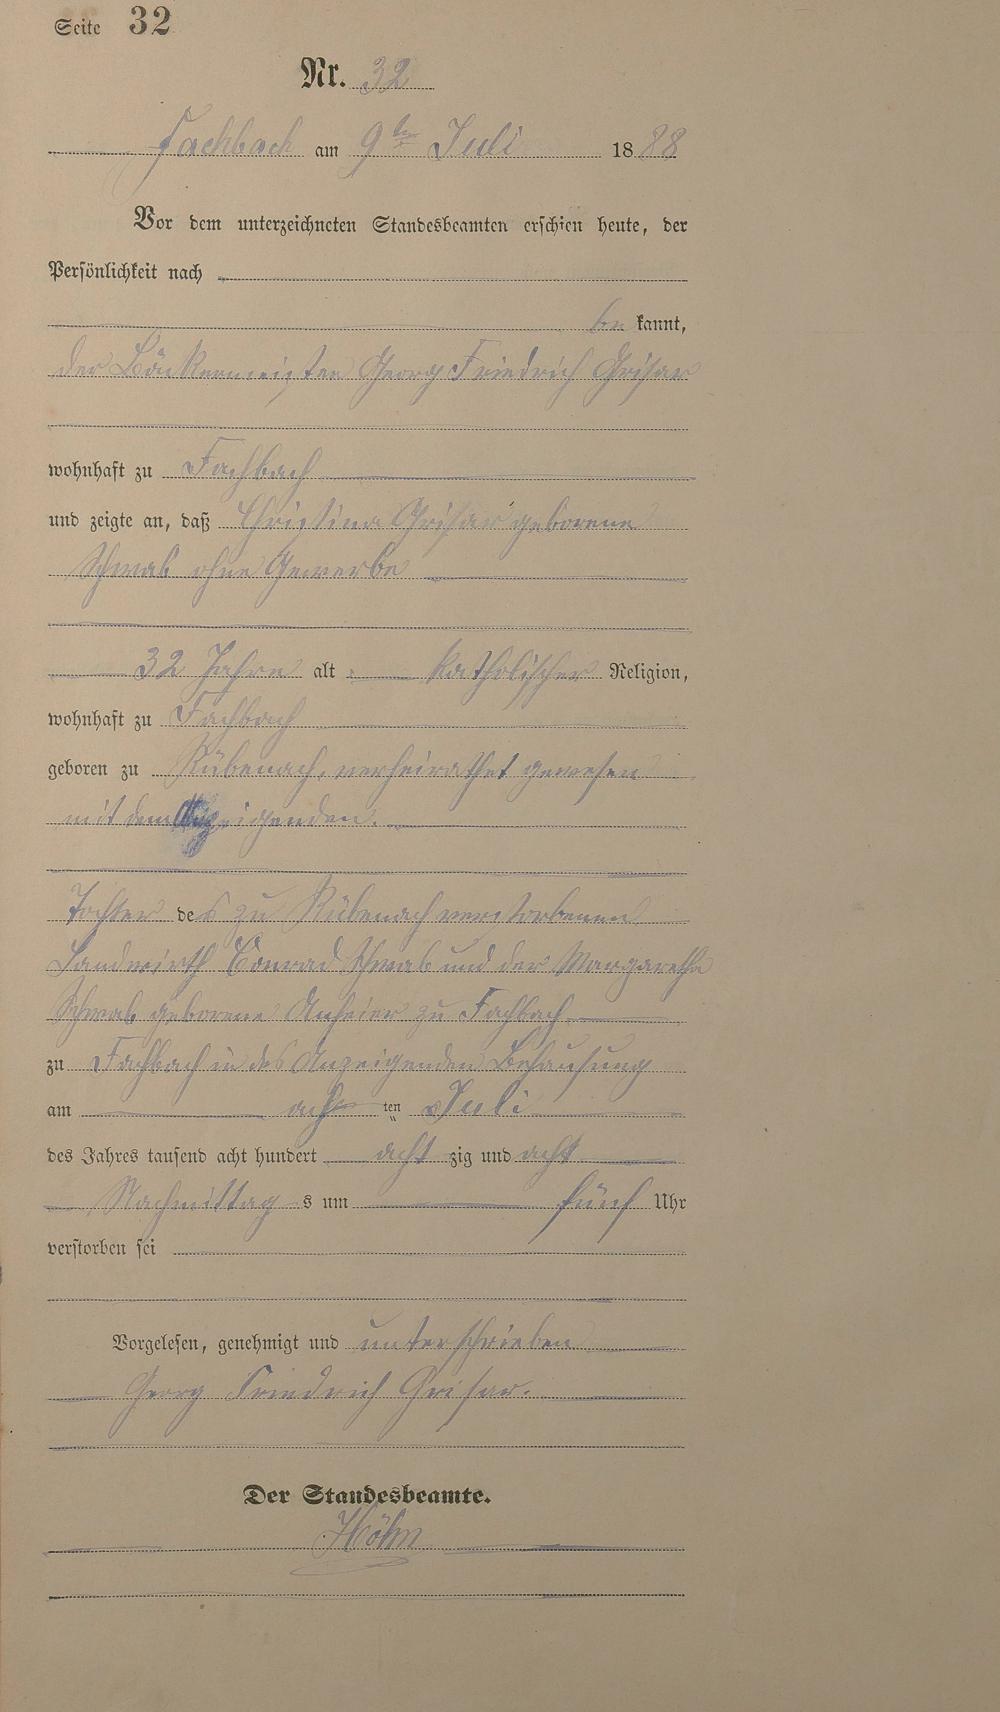 Seite 32
Nr. 32
Fachbach am 9ten Juli 1888
Vor dem unterzeichneten Standesbeamten erschien heute, der
Persönlichkeit nach
be kannt,
der Bäckermeister Georg Friedrich Grisar
wohnhaft zu Fachbach
und zeigte an, daß Christina Grisar geborene
Schwab ohne Gewerbe
32 Jahre alt katholischer Religion,
wohnhaft zu Fachbach
geboren zu Rübenach, verheirathet gewesen
mit dem Anzeigenden.
Tochter des zu Rübenach verstorbenen
Landwirth Conrad Schwab und der Margaretha
Schwab geborene Anheier zu Fachbach
zu Fachbach in des Anzeigenden Behausung
am acht ten Juli
des Jahres tausend acht hundert acht zig und acht
Nachmittag s um fünf Uhr
verstorben sei
Vorgelesen, genehmigt und unterschrieben
Georg Friedrich Grisar.
Der Standesbeamte.
Höhn